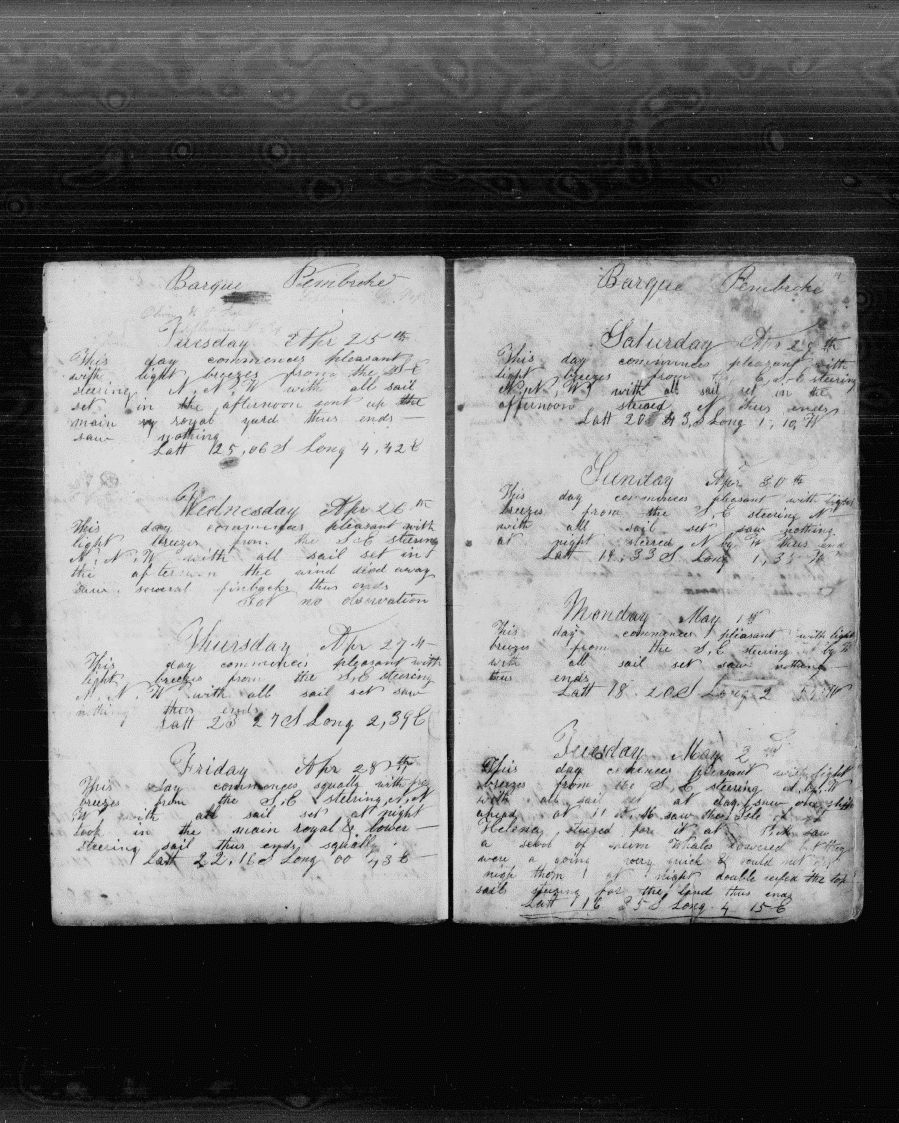 Barque Pembroke
Tuesday Apr 25th
This day commences pleasant
with light breezes from the S E
steering N N W with all sail
set in the afternoon sent up the
main royal yard thus ends
saw nothing
Latt 25,06 S Long 4,42 E
Wednesday Apr 26th
This day commences pleasant with
light breezes from the S E steering
N, N, W with all sail set in
the afternoon the wind died away
saw several finbacks thus ends
Got no observation
Thursday Apr 27th
This day commences pleasant with
light breezes from the S, E steering
N. N. W with all sail set saw
nothing thus ends
Latt 23 27 S Long 2,39 E
Friday Apr 28th
This day commences squally with
breezes from the S, E steering N, N
W with all sail set at night
took in the main royal & lower
steering sail thus ends squally
Latt 22,16 S Long 00 43 E
Barque Pembroke
Saturday Apr 29th
This day commences pleasant with
light breezes from E, S, E steering
N, N, W, with all sail set in the
afternoon thus ends
Latt 20 43, S Long 1, 10, W
Sunday Apr 30th
This day commences pleasant with light
breezes from the S, E steering N
with all sail set saw nothing
at night steered N by W thus ends
Latt 33 S Long 1, W
Monday May 1st
This day commences pleasant with light
breezes from the S, E steering by W
with all sail set saw nothing
thus ends
Latt 18. 20 S Long 2 W
Tuesday May 2nd
This day comences plesant with light
breezes from the S, E steering W
with all sail set at day saw one ship
ahead at 11 saw the Isle of St
Helena steered for it at saw
a scool of Whales lowered but they
were a going very quick & could not
at night double reefed the top
sail steering for the land thus ends
Latt 16 25 S Long. 4 15 E